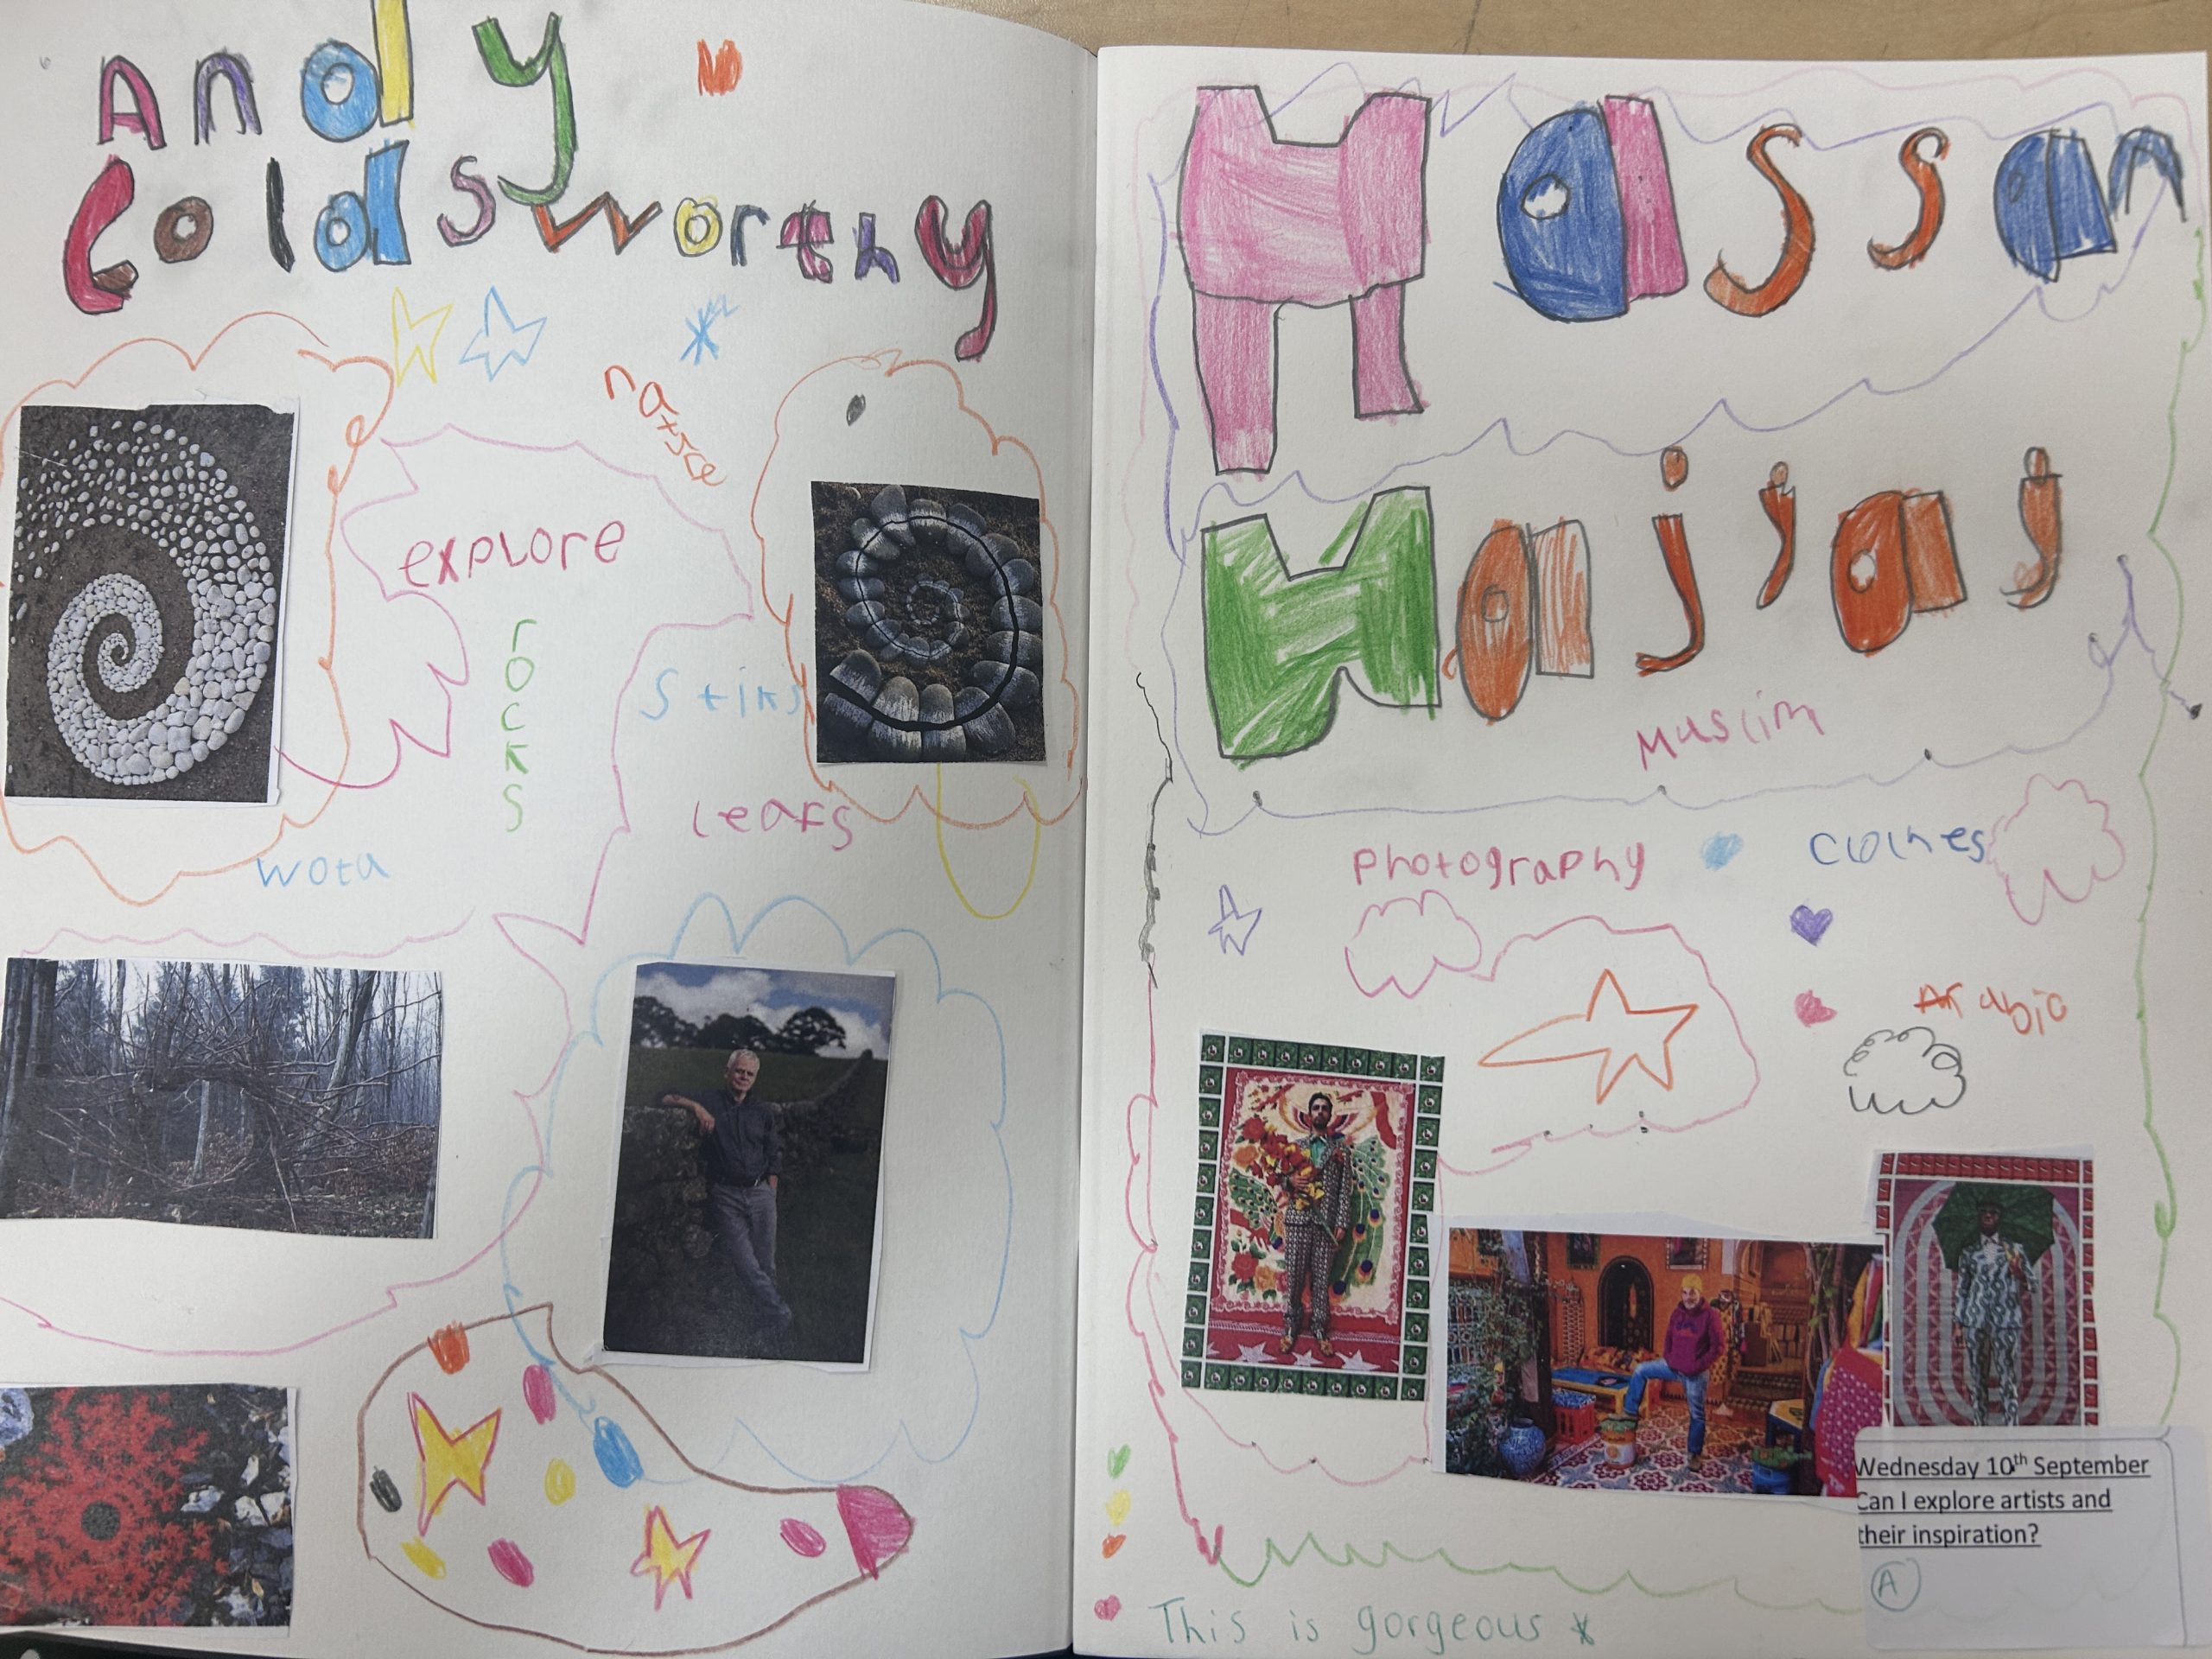 Andy
Goldsworthy
natsre
explore
rocks
Stiks
leafs
wota
Hassan
Hajjaj
Muslim
photography
clothes
Arabic
Wednesday 10th September
Can I explore artists and
their inspiration?
A
This is gorgeous